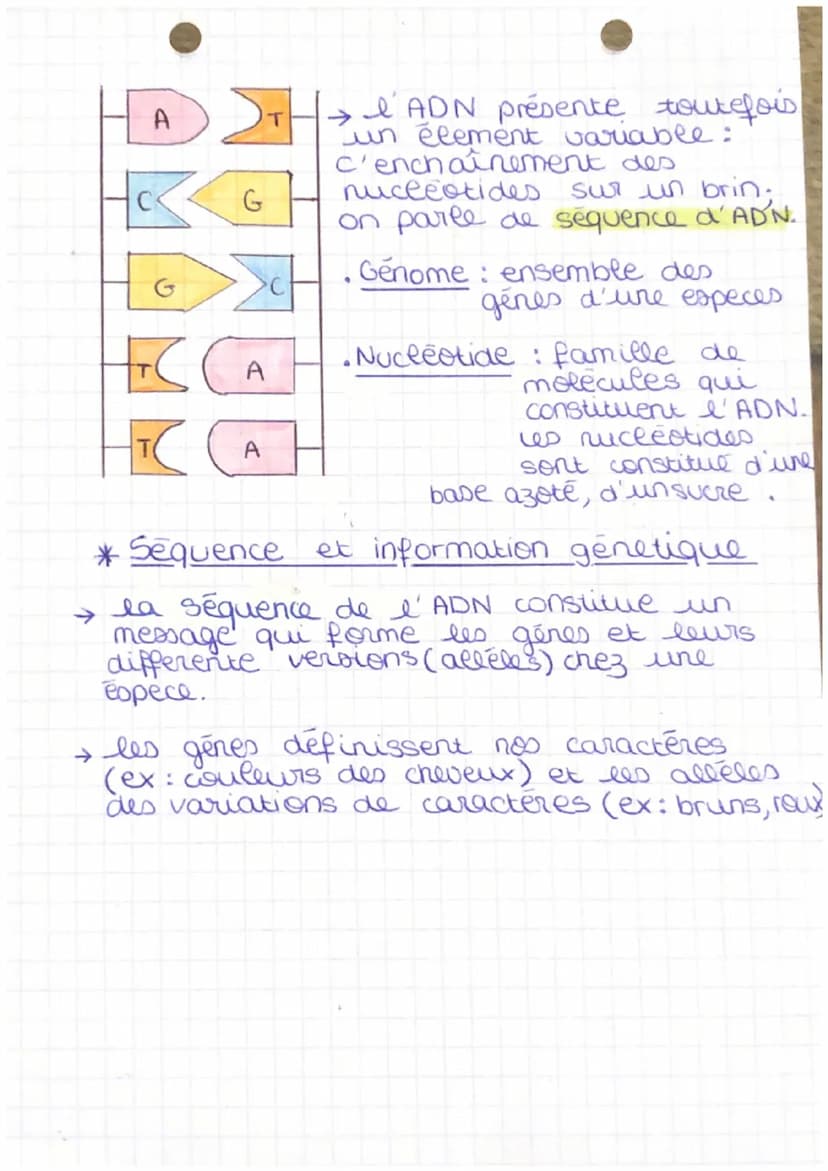 A T
C G
G C
T A
T A
→ l'ADN présente toutefois
un élement variable :
c'enchaînement des
nucléotides sur un brin.
on parle de séquence d'ADN.
. Génome : ensemble des
génes d'une especes
. Nucléotide : famille de
molécules qui
constituent l'ADN.
les nucléotides
sont constitué d'une
base azoté, d'un sucre .
* Séquence et information génetique
→ la séquence de l'ADN constitue un
message qui forme les génes et leurs
differente versions (alléles) chez une
éspece.
→ les génes définissent nos caractéres
(ex : couleurs des cheveux) et les alléles
des variations de caractéres (ex : bruns, roux)